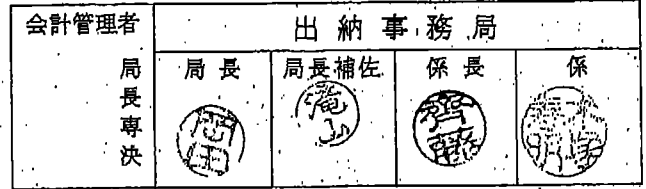 会計管理者
出納事務局
局長専決
局長
局長補佐
係長
係
滝山
齊藤